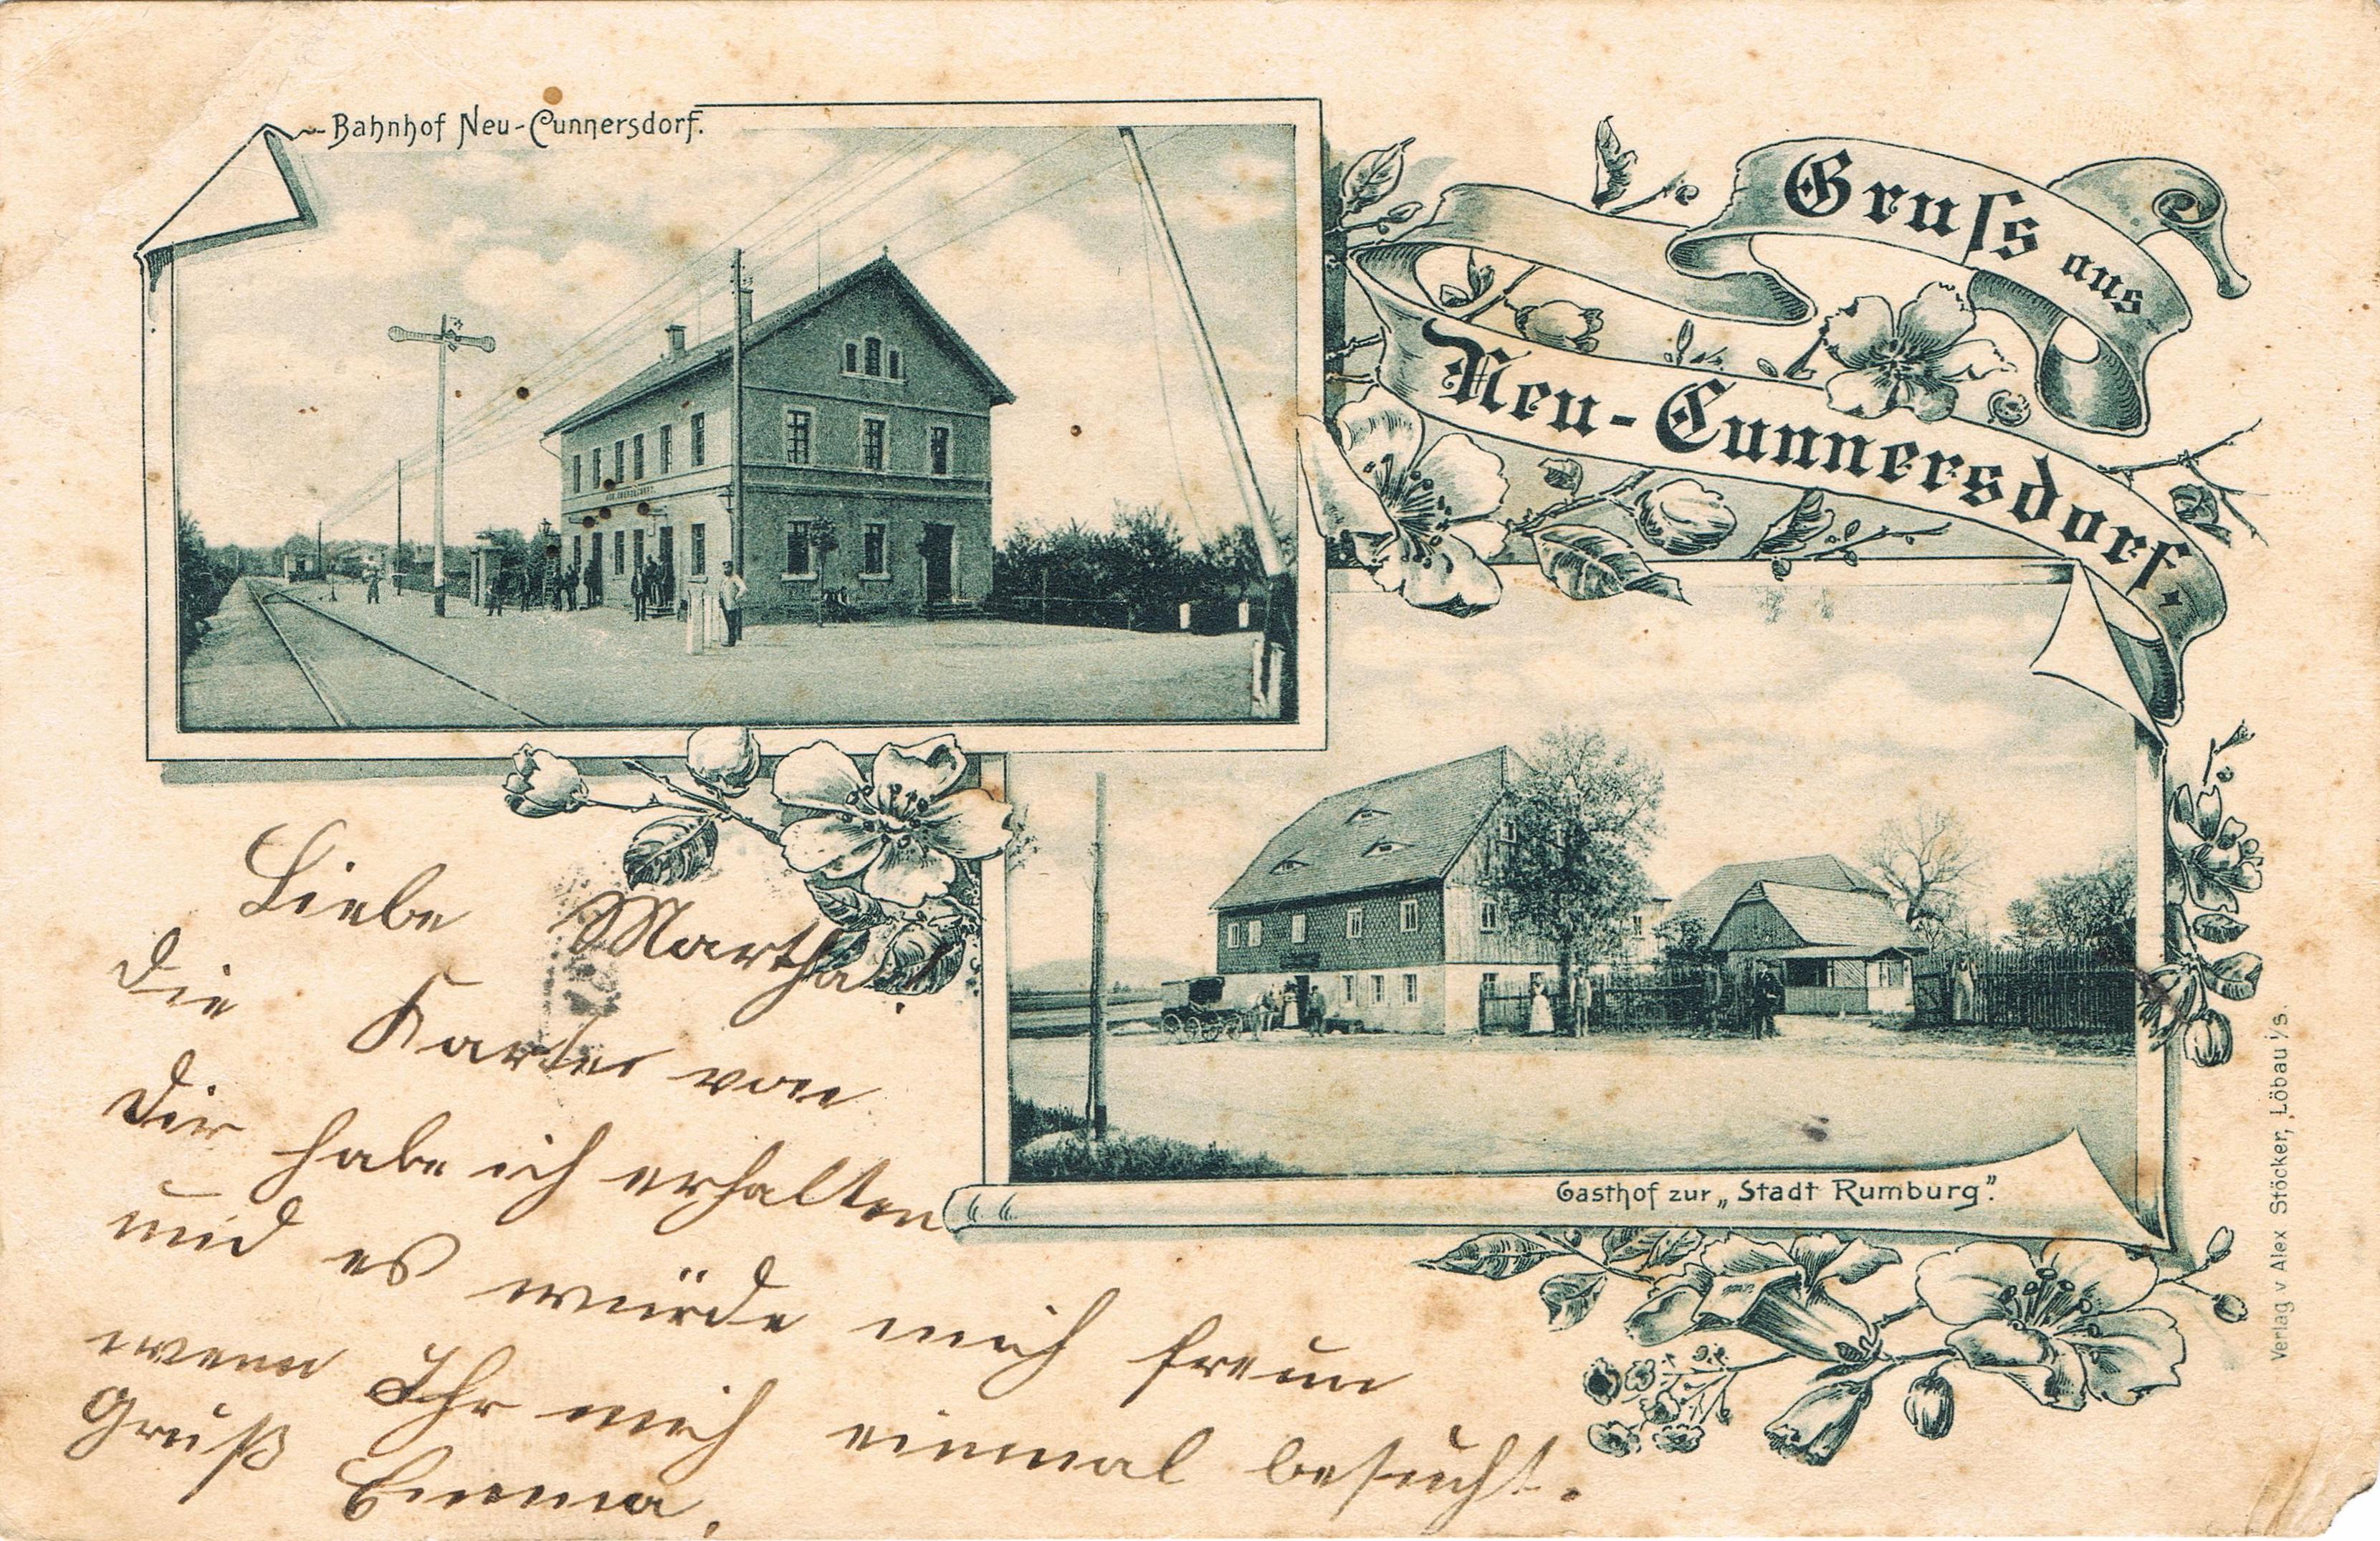 Bahnhof Neu-Cunnersdorf.
Gruſs aus
Neu-Cunnersdorf.
Gasthof zur „Stadt Rumburg".
Verlag v Alex Stöcker, Löbau i/s.
Liebe Martha!
die Karte von
dir habe ich erhalten
und es würde mich freun
wenn Ihr mich einmal besucht.
Gruß
Emma.